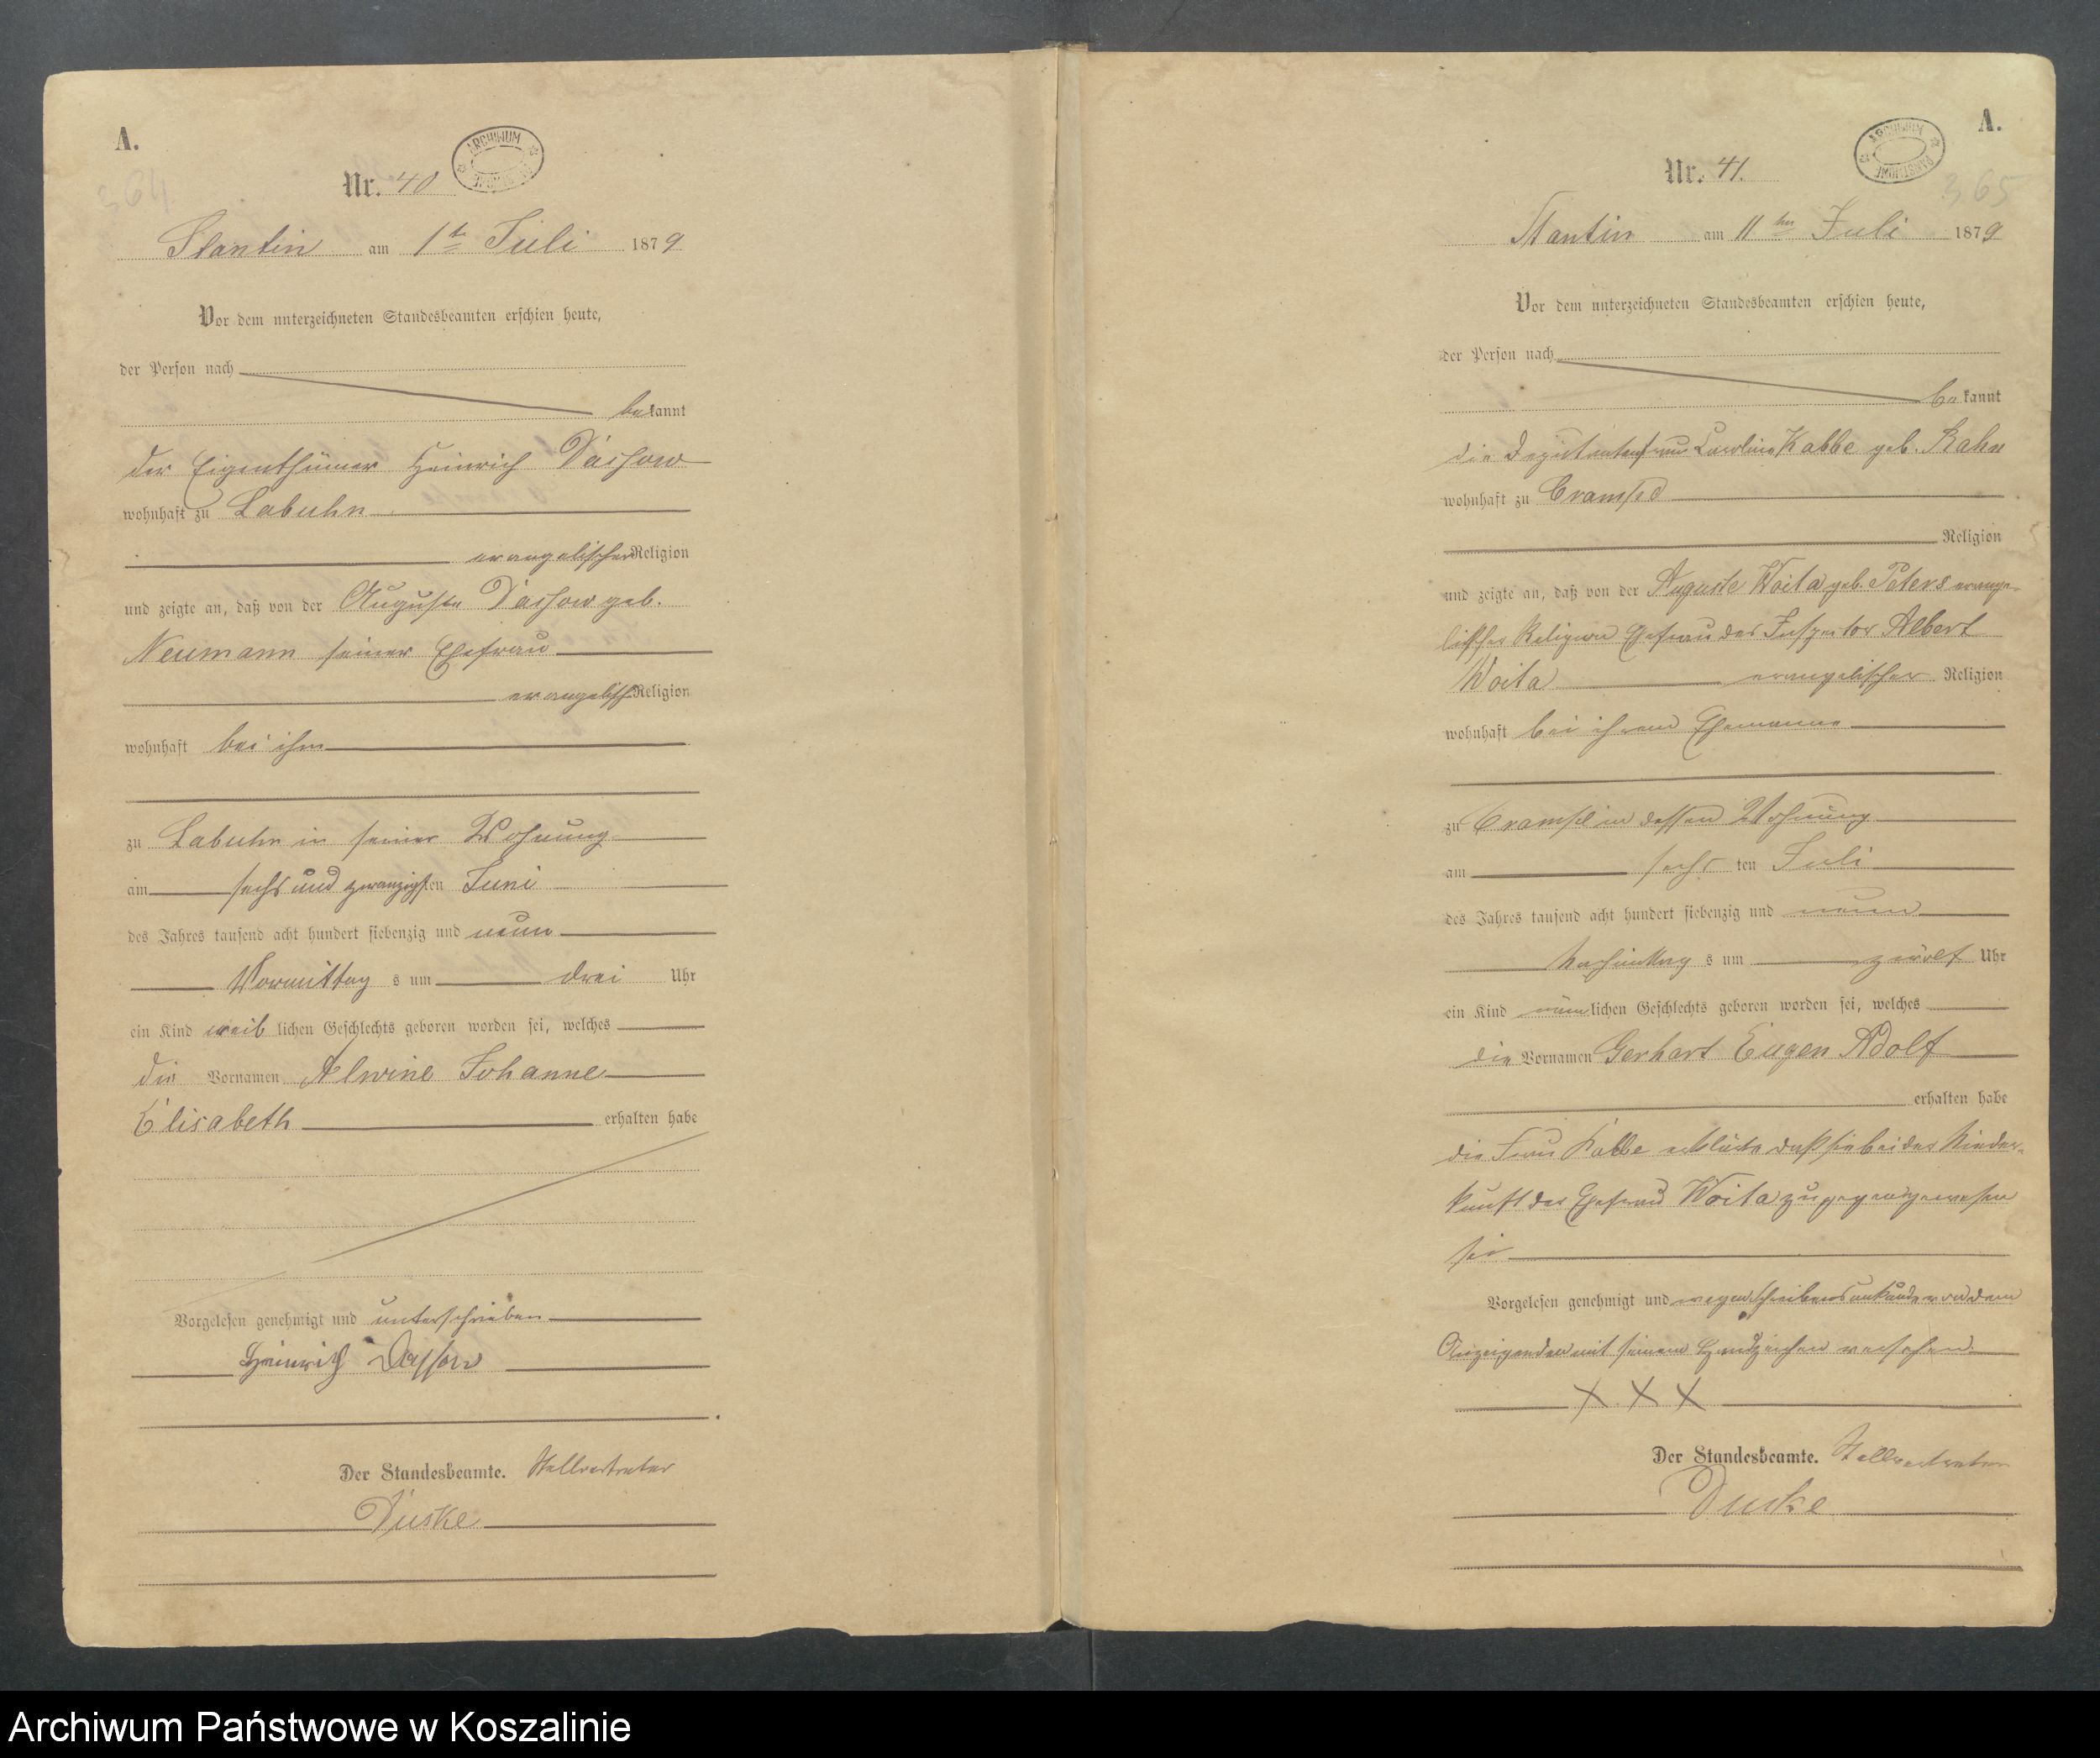 A.
364
Nr. 40
ARCHIWUM
Stantin am 1t Juli 1879
Vor dem unterzeichneten Standesbeamten erschien heute,
der Person nach
bekannt
der Eigenthümer Heinrich Dassow
wohnhaft zu Labuhn
evangelischer Religion
und zeigte an, daß von der Auguste Dassow geb.
Neumann seiner Ehefrau
evangelisch Religion
wohnhaft bei ihm
zu Labuhn in seiner Wohnung
am sechs und zwanzigsten Juni
des Jahres tausend acht hundert siebenzig und neun
Vormittag s um drei Uhr
ein Kind weib lichen Geschlechts geboren worden sei, welches
die Vornamen Alwine Johanne
Elisabeth erhalten habe
Vorgelesen genehmigt und unterschrieben
Heinrich Dassow
Der Standesbeamte. Stellvertreter
Duske
A.
365
Nr. 41.
ARCHIWUM PAŃSTWOWE
Stantin am 11ten Juli 1879
Vor dem unterzeichneten Standesbeamten erschien heute,
der Person nach
bekannt
die Deputantenfrau Caroline Kabbe geb. Rahn
wohnhaft zu
Religion
und zeigte an, daß von der Auguste Woita geb. Peters evange-
lischer Religion Ehefrau des Inspector Albert
Woita evangelischer Religion
wohnhaft bei ihrem Ehemanne
zu in dessen Wohnung
am sechs ten Juli
des Jahres tausend acht hundert siebenzig und neun
Nachmittag s um zwölf Uhr
ein Kind män lichen Geschlechts geboren worden sei, welches
die Vornamen Gerhart Eugen Adolf
erhalten habe
die Frau Kabbe erklärte daß sie bei der Nieder-
kunft der Ehefrau Woita zugegen gewesen
sei
Vorgelesen genehmigt und wegen Schreibensunkunde von dem
Anzeigenden mit seinem Handzeichen versehen.
X X X
Der Standesbeamte. Stellvertreter
Duske
Archiwum Państwowe w Koszalinie